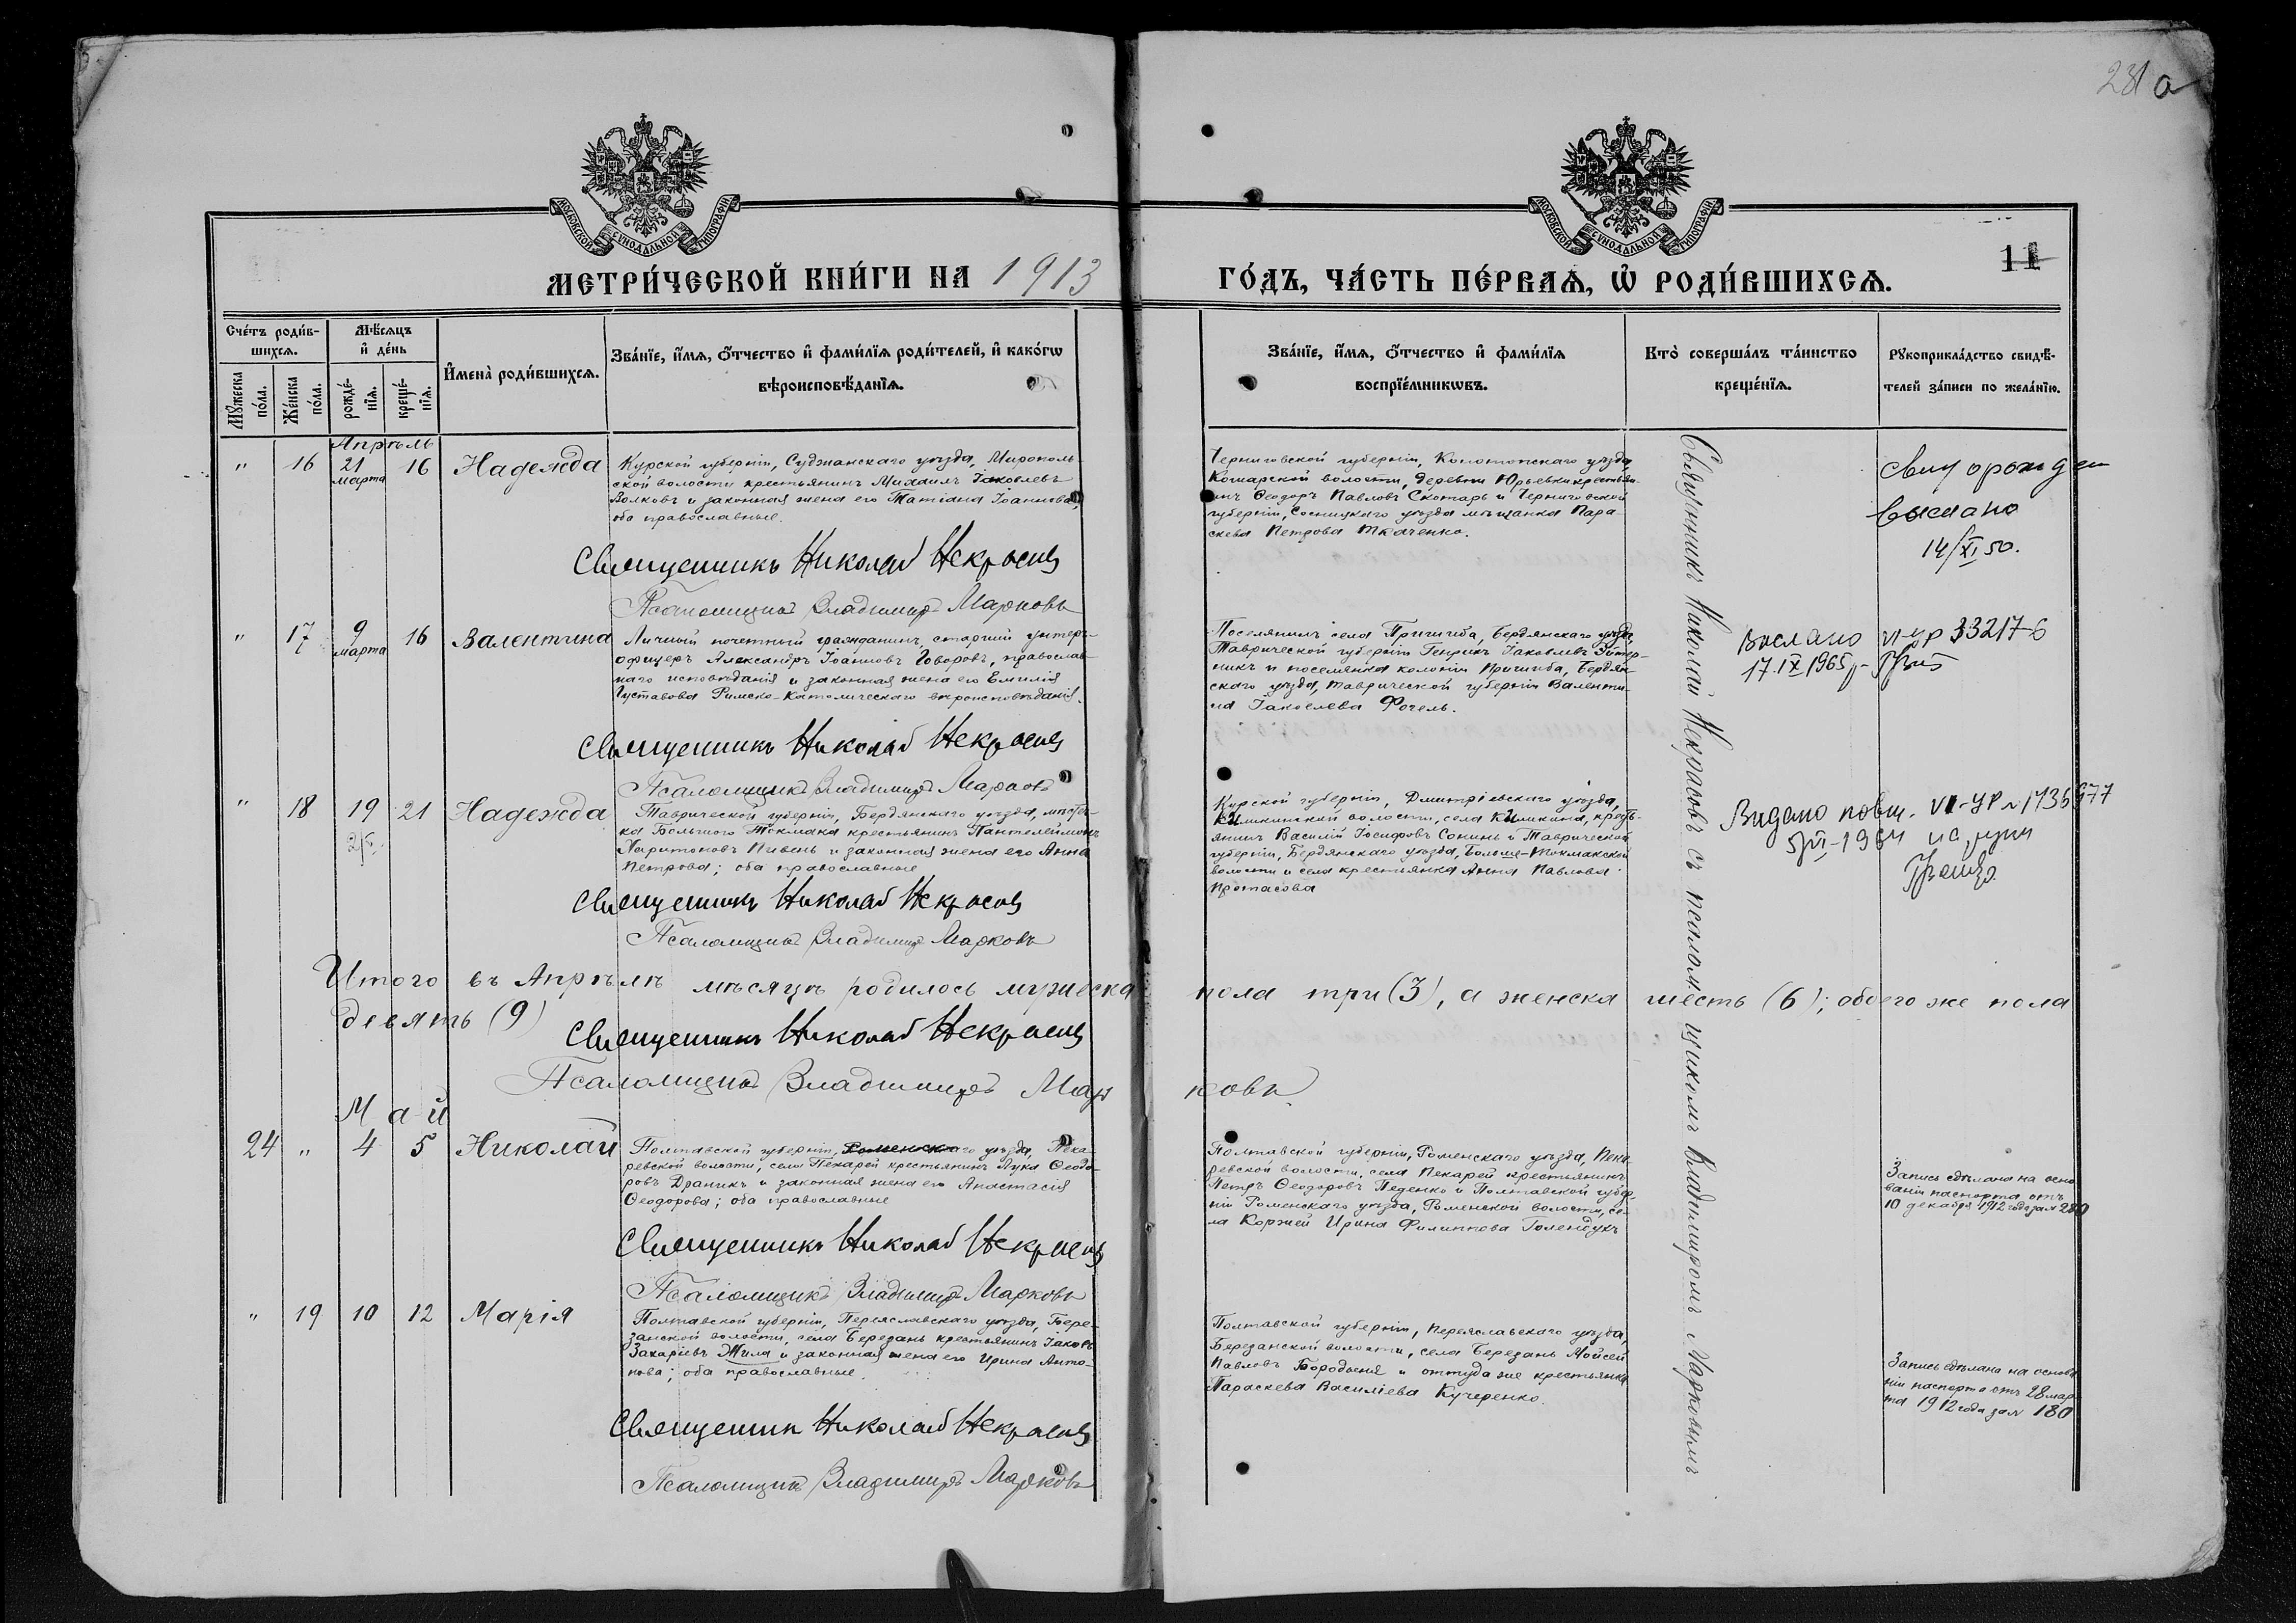 281 а
МОСКОВСКОЙ СѴНОДАЛЬНОЙ ТИПОГРАФІИ
МОСКОВСКОЙ СѴНОДАЛЬНОЙ ТИПОГРАФІИ
11
МЕТРИ́ЧЕСКОЙ КНИ́ГИ НА 1913 ГО́ДЪ, ЧА́СТЬ ПЕ́РВАѦ, Ѡ РОДИ́ВШИХСѦ.
Сче́тъ роди́в-
шихсѧ.
Мꙋ́жеска
по́ла.
Же́нска
по́ла.
Мѣ́сѧцъ
и҆ де́нь
рожде́-
нїѧ.
креще́-
нїѧ.
И҆мена̀ роди́вшихсѧ.
Зва́нїе, и҆́мѧ, ѻ҆́тчество и҆ фами́лїѧ роди́телей, и҆ како́гѡ
вѣроисповѣ́данїѧ.
Зва́нїе, и҆́мѧ, ѻ҆́тчество и҆ фами́лїѧ
воспрїе́мникѡвъ.
Кто̀ соверша́лъ та́инство
креще́нїѧ.
Рꙋкоприкла́дство свидѣ́-
телей за́писи по жела́нїю.
Апрѣль
" 16 21 марта 16 Надежда
Курской губерніи, Суджанскаго уѣзда, Мирополь
ской волости крестьянинъ Михаилъ Іаковлевъ
Волковъ и законная жена его Татіана Іоаннова,
оба православные.
Священникъ Николай Некрасовъ
Псаломщикъ Владимиръ Марковъ
Черниговской губерніи, Конотопскаго уѣзда,
Кошарской волости, деревни Юрьевки крестья-
инъ Ѳеодоръ Павловъ Скотарь и Черниговской
губерніи, Сосницкаго уѣзда мѣщанка Пара-
скева Петрова Ткаченко.
Священникъ Николай Некрасовъ съ псаломщикомъ Владимиромъ Марковымъ
Свид о рожден
выслано
14/XI 50.
" 17 9 марта 16 Валентина
Личный почетный гражданинъ, старшій унтеръ-
офицеръ Александръ Іоанновъ Говоровъ, православ-
наго исповѣданія и законная жена его Емилія
Густавова Римско-католическаго вѣроисповѣданія.
Священникъ Николай Некрасовъ
Псаломщикъ Владимиръ Марковъ
Поселянинъ села Пришиба, Бердянскаго уѣзда,
Таврической губерніи Генрихъ Іаковлевъ
никъ и поселянка колоніи Пришиба, Бердян-
скаго уѣзда, Таврической губерніи Валенти-
на Іаковлева Фогель.
Выслано VI-УР 332176
17.IX 1965 р.
" 18 19 21 Надежда
Таврической губерніи, Бердянскаго уѣзда, мѣстеч-
ка Большого Токмака крестьянинъ Пантелеймонъ
Харитоновъ Пивень и законная жена его Анна
Петрова; оба православные
Священникъ Николай Некрасовъ
Псаломщикъ Владимиръ Марковъ
Курской губерніи, Дмитріевскаго уѣзда,
волости, села кресть-
янинъ Василій Іосифовъ Сонинъ и Таврической
губерніи, Бердянскаго уѣзда, Больше-Токмакской
волости и села крестьянка Анна Павлова
Протасова
Видано повт. VI-УР 1736977
1964 на руки
Итого въ Апрѣлѣ мѣсяцѣ родилось мужеска пола три (3), а женска шесть (6); обоего же пола
девять (9)
Священникъ Николай Некрасовъ
Псаломщикъ Владимиръ Марковъ.
Май
24 " 4 5 Николай
Полтавской губерніи, Роменскаго уѣзда, Пека-
ревской волости, села Пекарей крестьянинъ Лука Ѳеодо-
ровъ Драникъ и законная жена его Анастасія
Ѳеодорова; оба православные
Священникъ Николай Некрасовъ
Псаломщикъ Владимиръ Марковъ
Полтавской губерніи, Роменскаго уѣзда, Пека-
ревской волости, села Пекарей крестьянинъ
Петръ Ѳеодоровъ Педенко и Полтавской губер-
ніи Роменскаго уѣзда, Роменской волости, се-
ла Коржей Ирина Филиппова Голендухъ
Запись сдѣлана на осно
ваніи паспорта отъ
10 декабря 1912 года за № 280
" 19 10 12 Марія
Полтавской губерніи, Переяславскаго уѣзда, Бере-
занской волости, села Березань крестьянинъ Іаковъ
Захаріевъ Жила и законная жена его Ирина Анто-
нова; оба православные.
Священник Николай Некрасовъ
Псаломщикъ Владимиръ Марковъ
Полтавской губерніи, Переяславскаго уѣзда,
Березанской волости, села Березань Моисей
Павловъ Бородыня и оттуда же крестьянка
Параскева Василіева Кучеренко.
Запись сдѣлана на основа
ніи паспорта отъ 28 мар-
та 1912 года за № 180